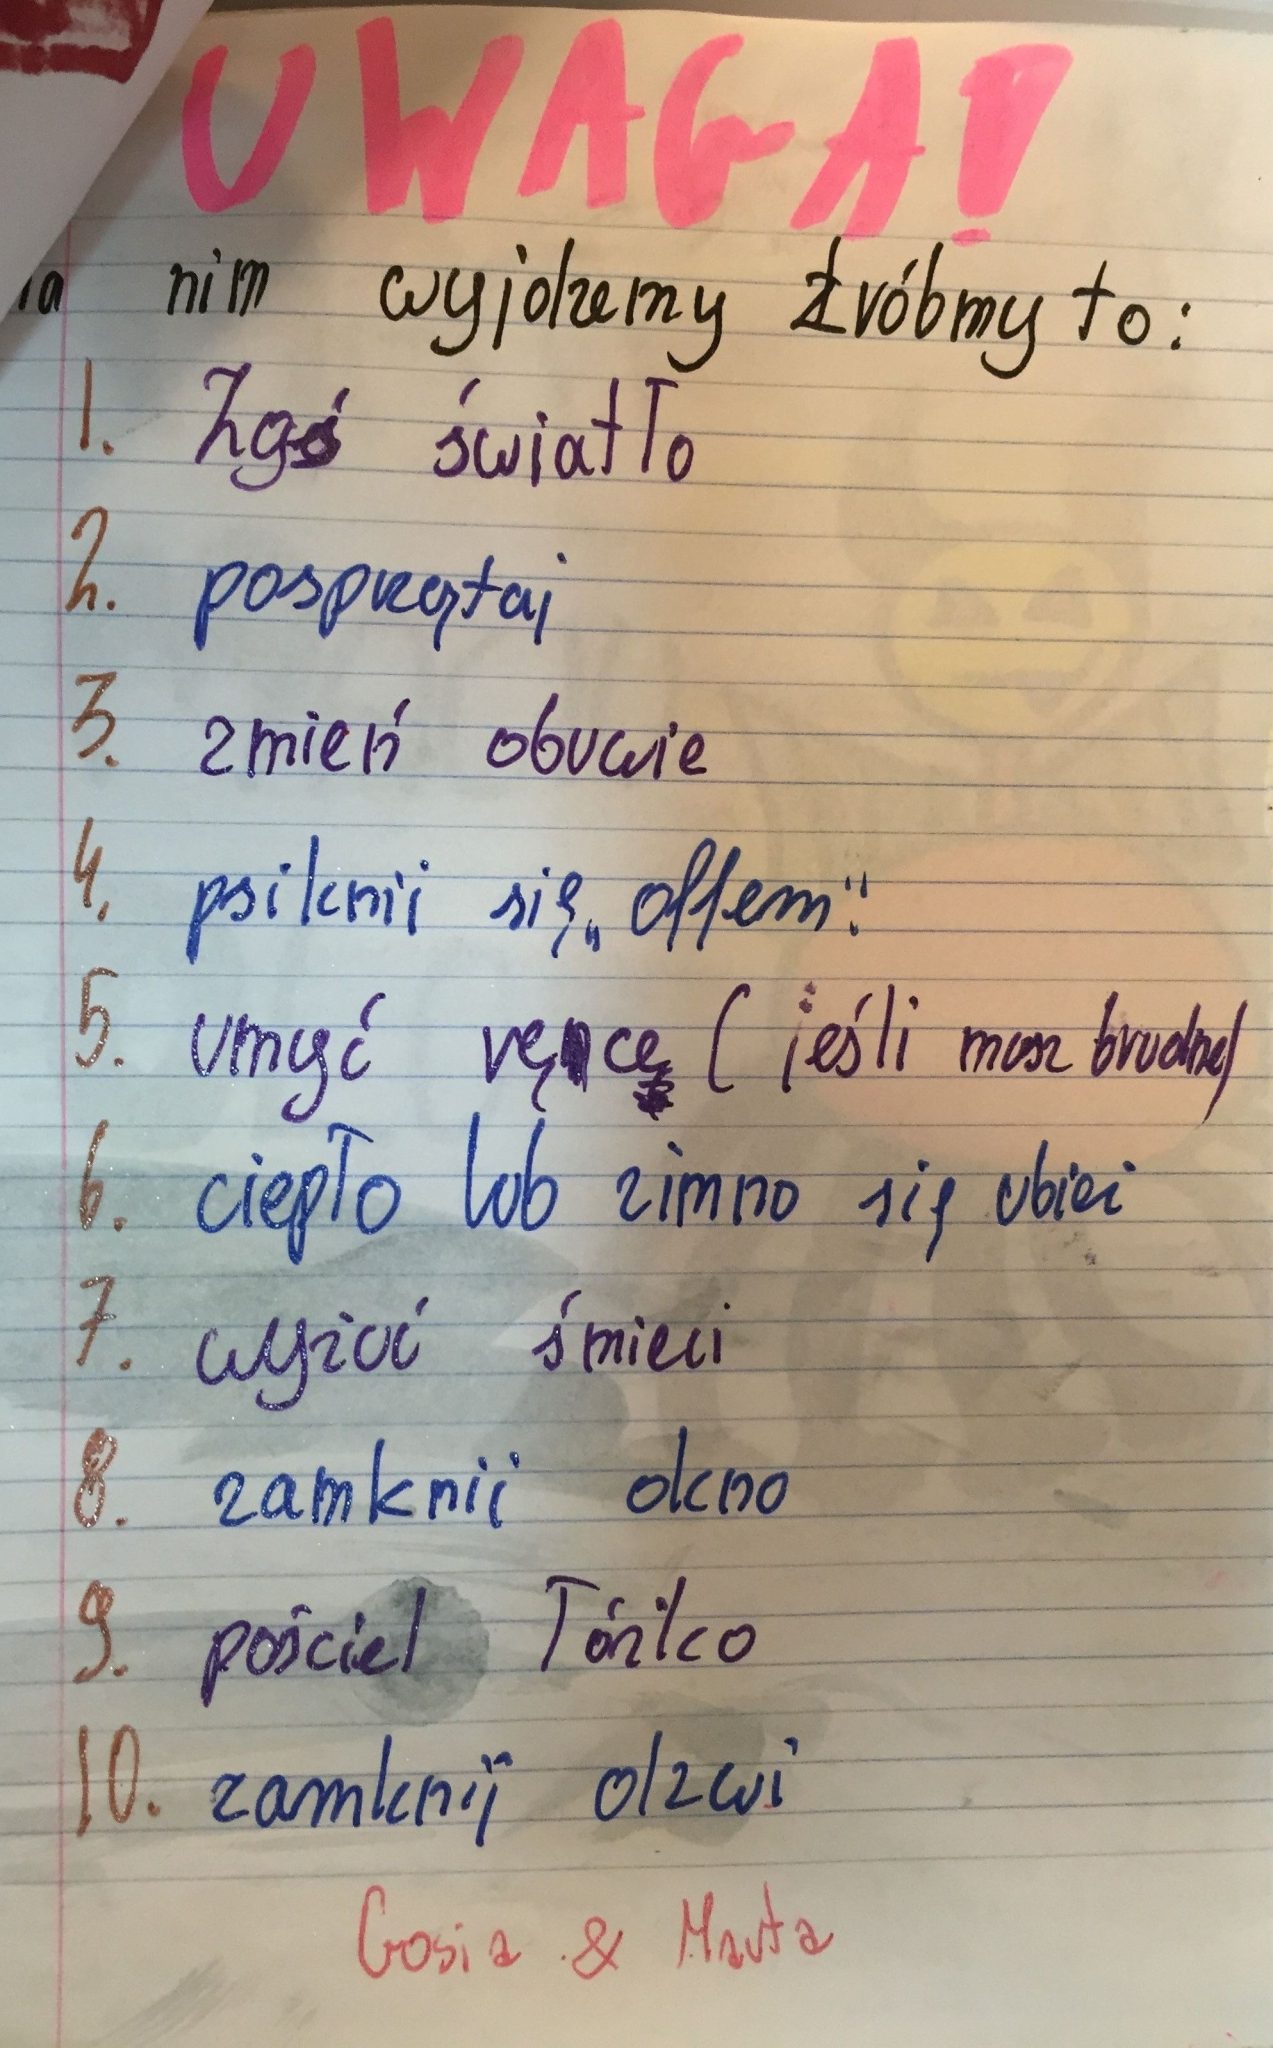 UWAGA!
nim wyjdzemy zróbmy to:
1. Zgś światło
2. posprzątaj
3. zmień obuwie
4. psiknij się „offem”.
5. umyć ręncę (jeśli masz brudne)
6. ciepło lub zimno się ubiei
7. wyzuć śmieci
8. zamknij okno
9. pościel łóżko
10. zamknij dzwi
Gosia & Marta